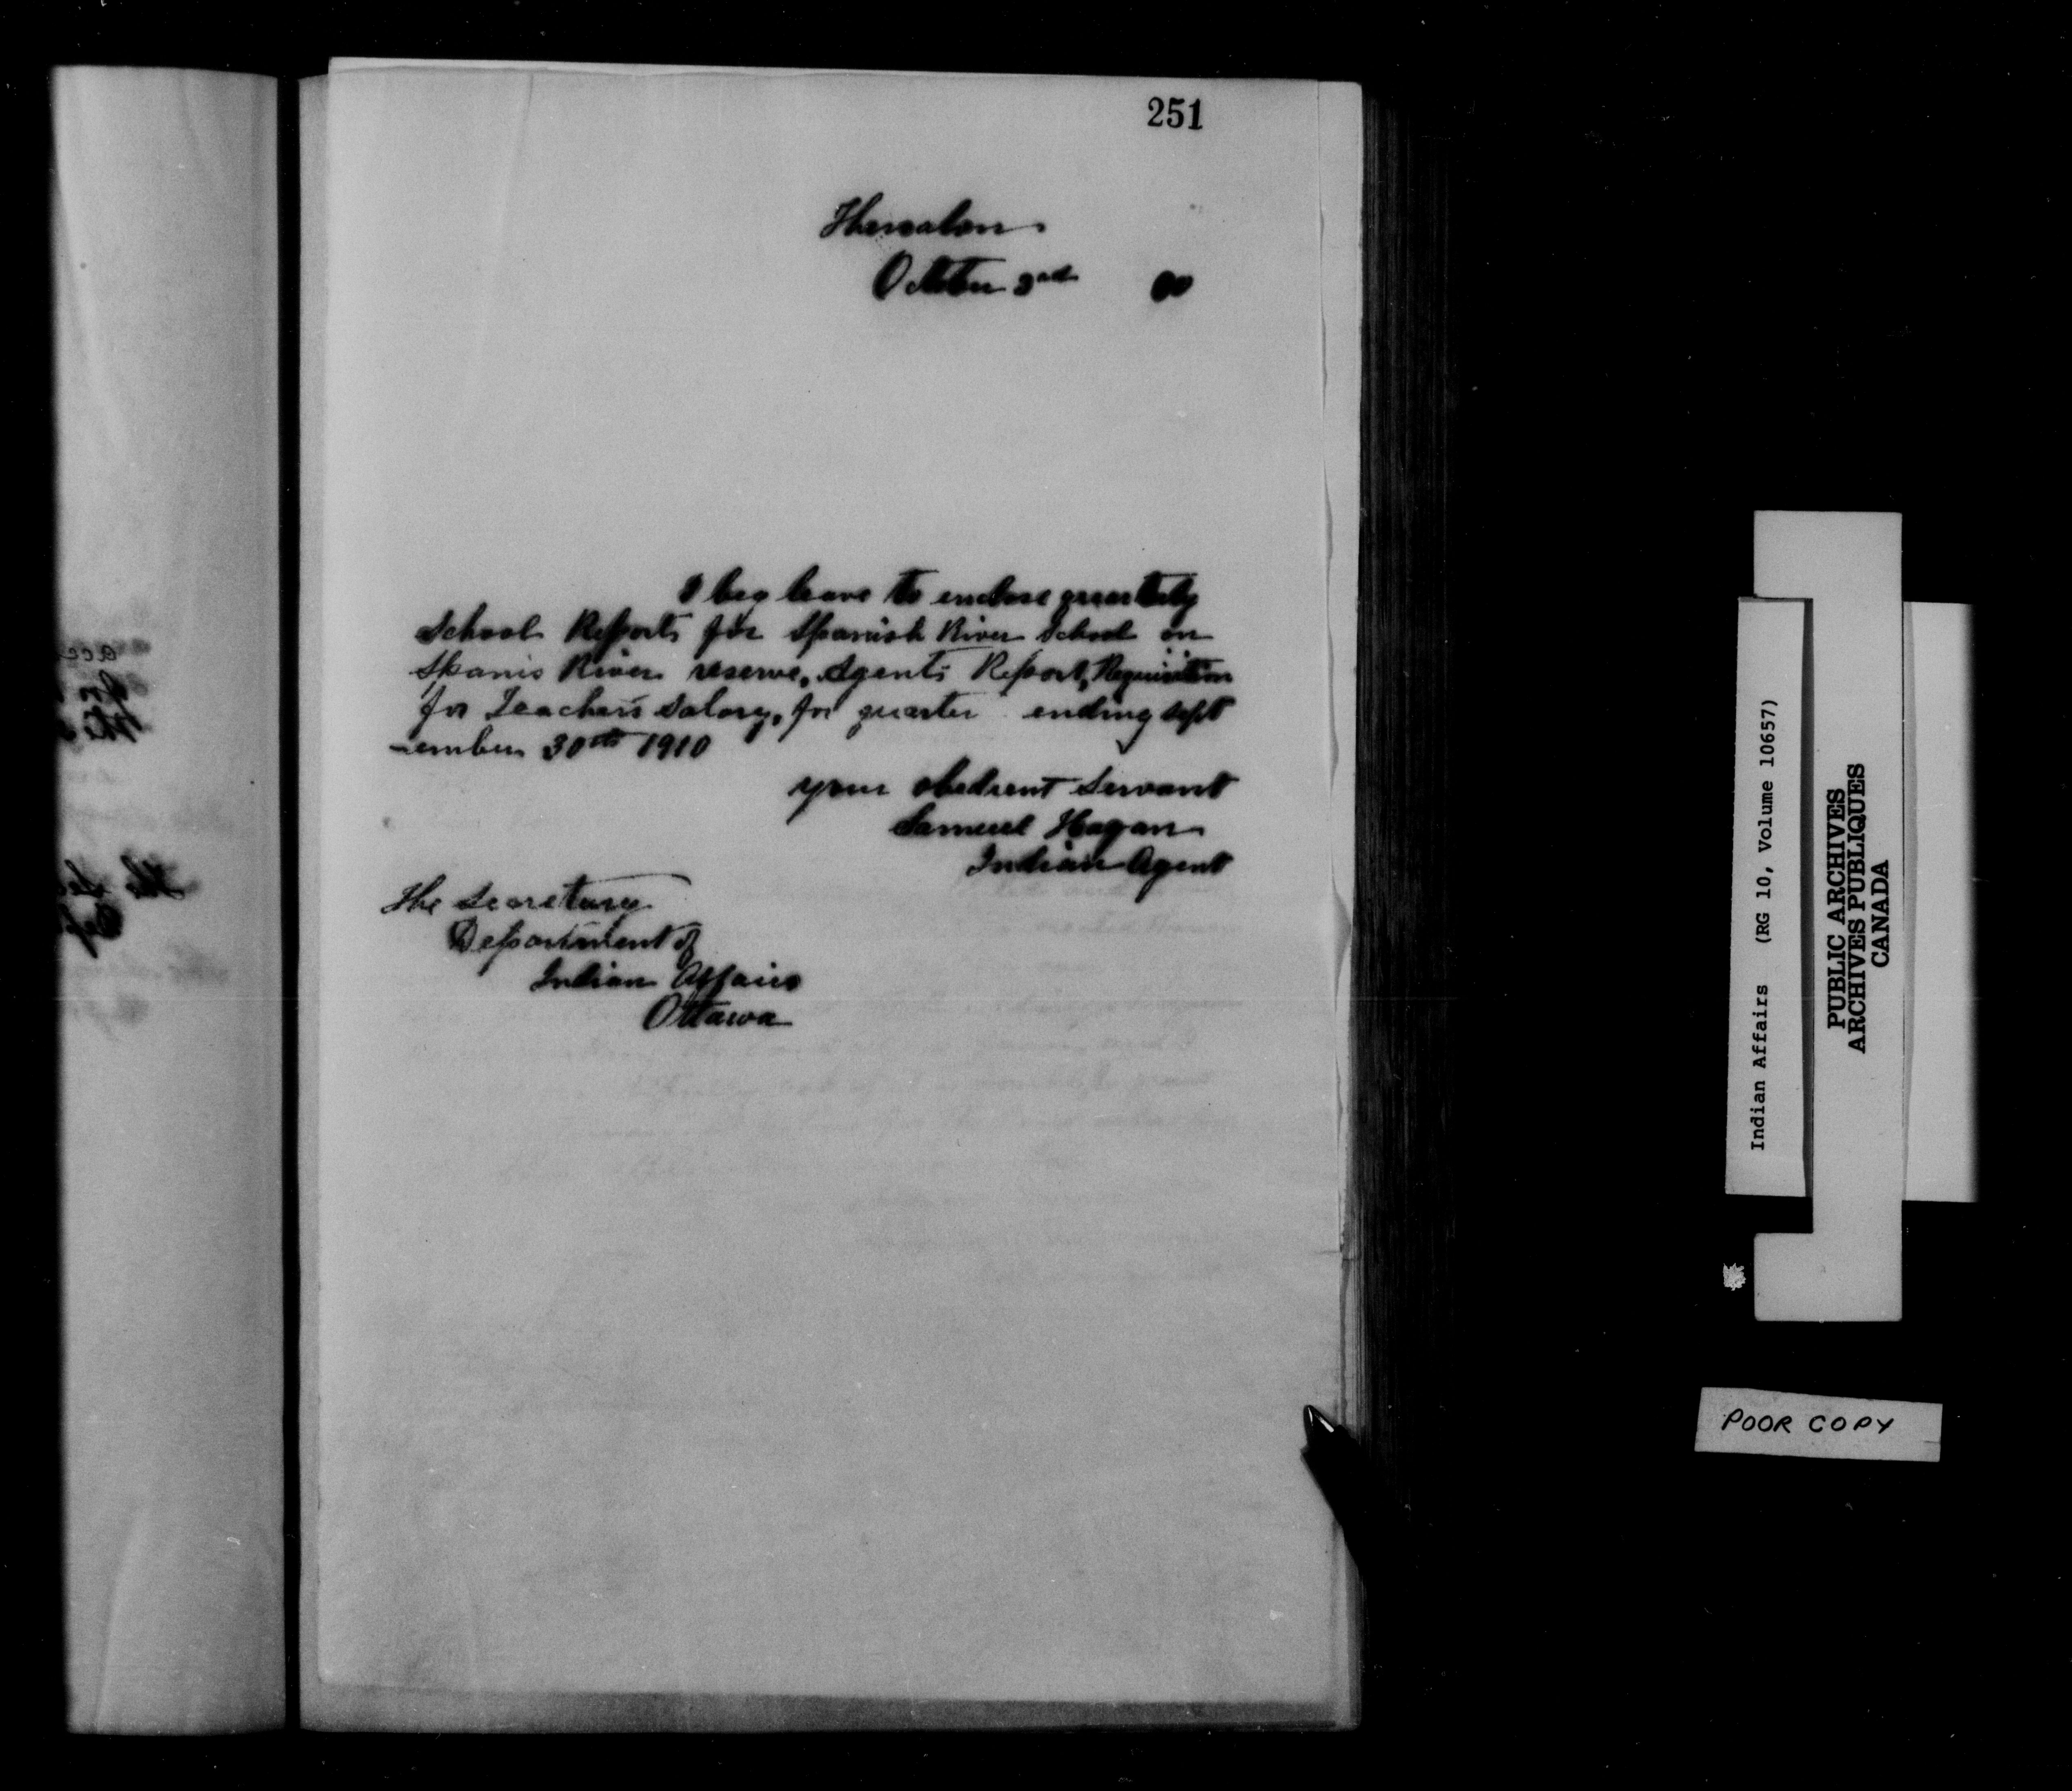 251
Thessalon
October 3rd
I beg leave to enclose quarterly
School Reports for Spanish River School on
Spanis River reserve, Agents Report, Requisition
for Teachers Salary, for quarter ending Sept
-ember 30th 1910
your obedient Servant
Samuel Hagan
Indian Agent
The Secretary
Department of
Indian Affairs
Ottawa
Indian Affairs (RG 10, Volume 10657)
PUBLIC ARCHIVES
ARCHIVES PUBLIQUES
CANADA
POOR COPY